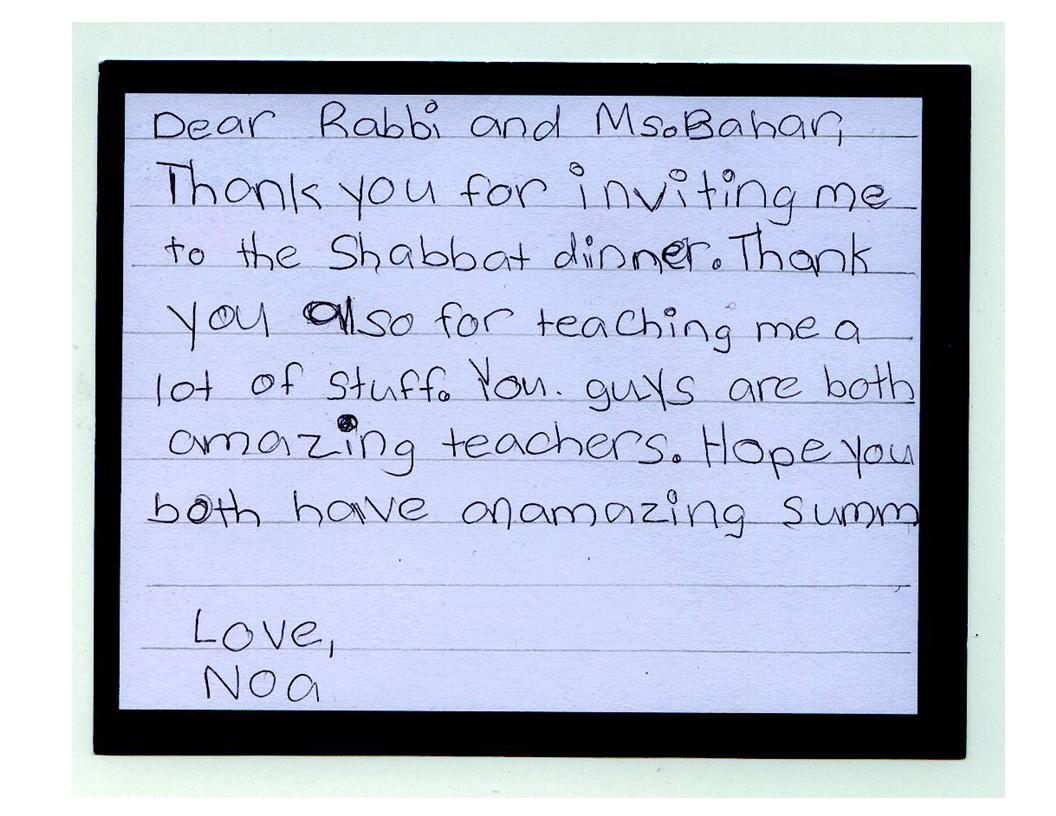 Dear Rabbi and Ms. Bahar,
Thank you for inviting me
to the Shabbat dinner. Thank
you also for teaching me a
lot of stuff. You. guys are both
amazing teachers. Hope you
both have an amazing summ
Love,
Noa